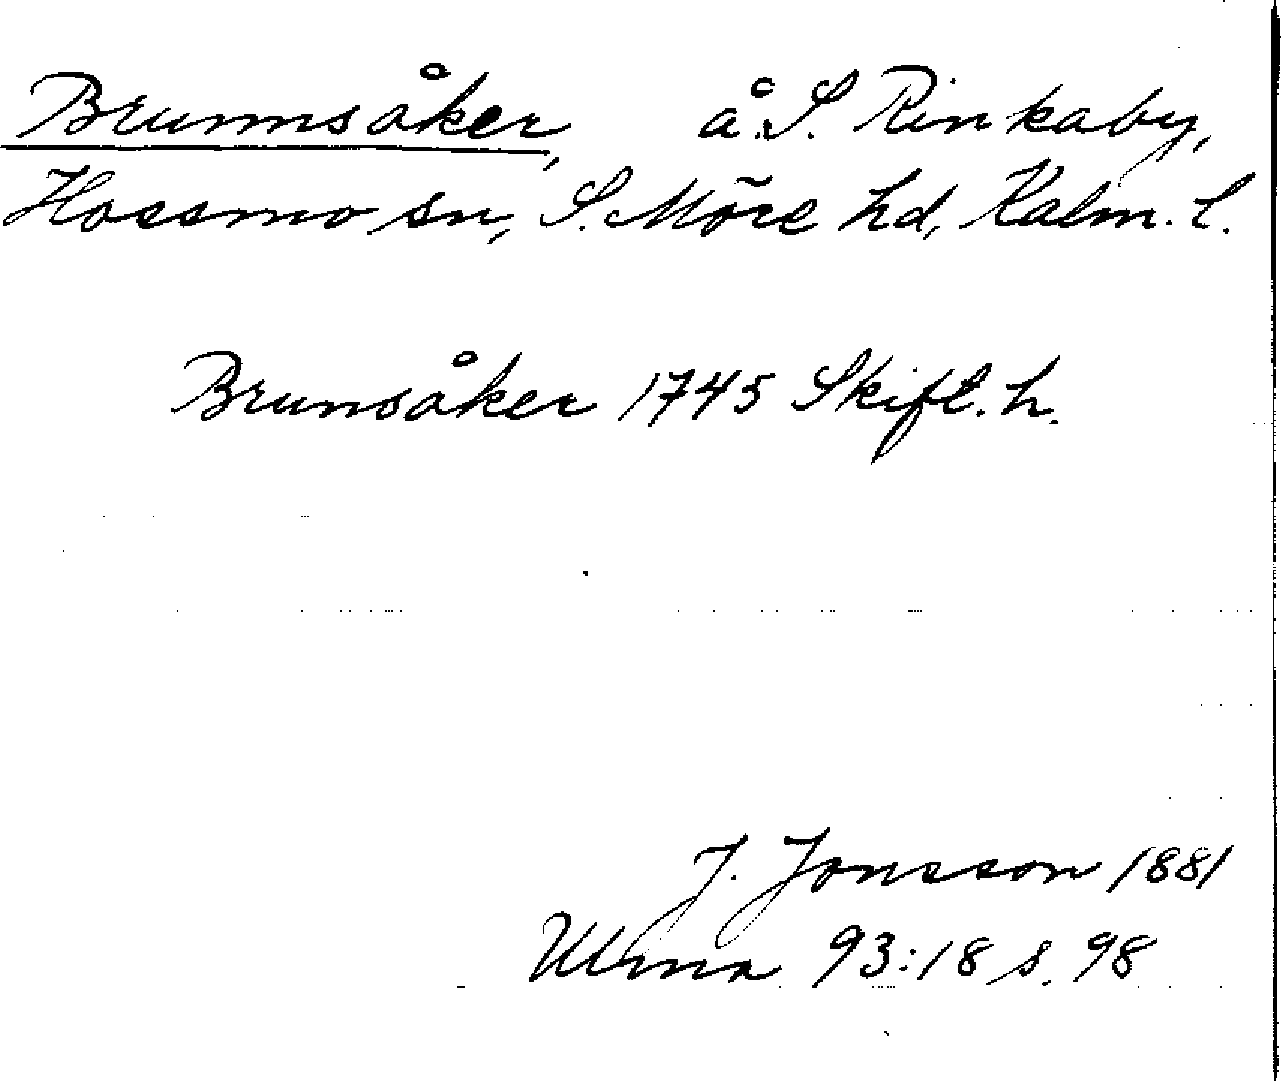 Brunnsåker, å. S. Rinkaby,
Hossmo sn, S. Möre hd, Kalm. l.
Brunsåker 1745 Skifl. h.
J. Jonsson 1881
Ulma 93:18 s. 98